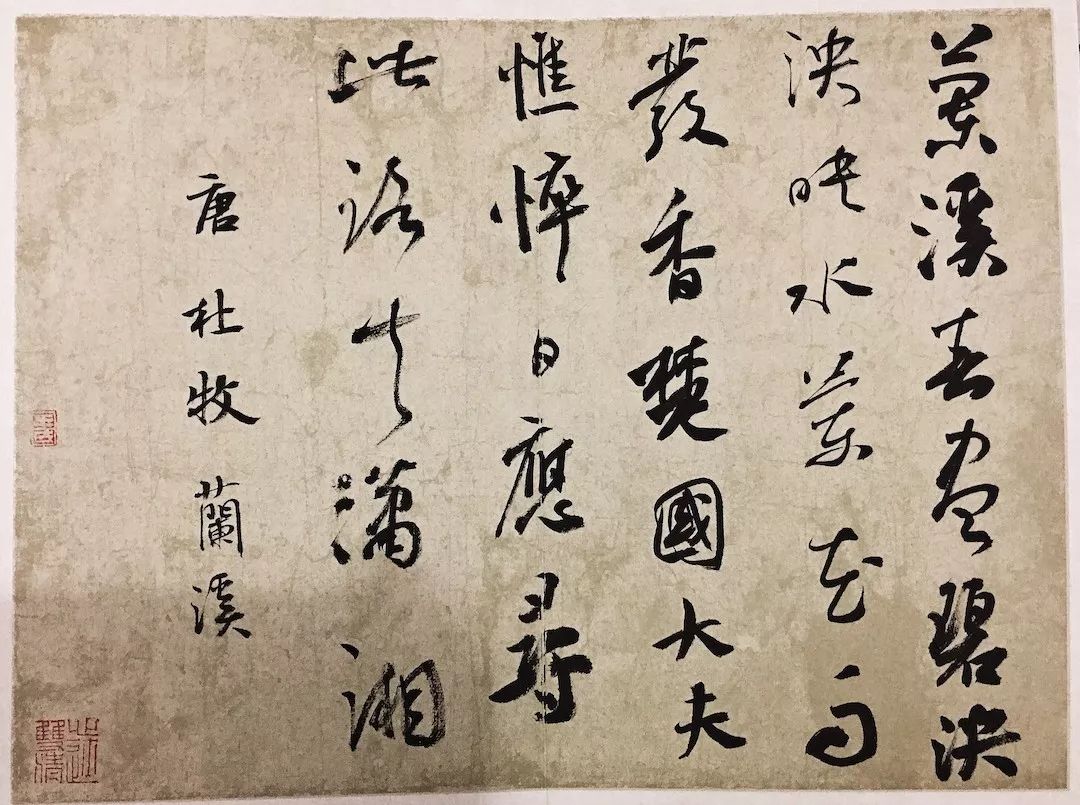 蘭溪春盡碧泱
泱映水蘭花雨
發香楚國大夫
憔悴日應尋
此路去瀟湘
唐 杜牧 蘭溪